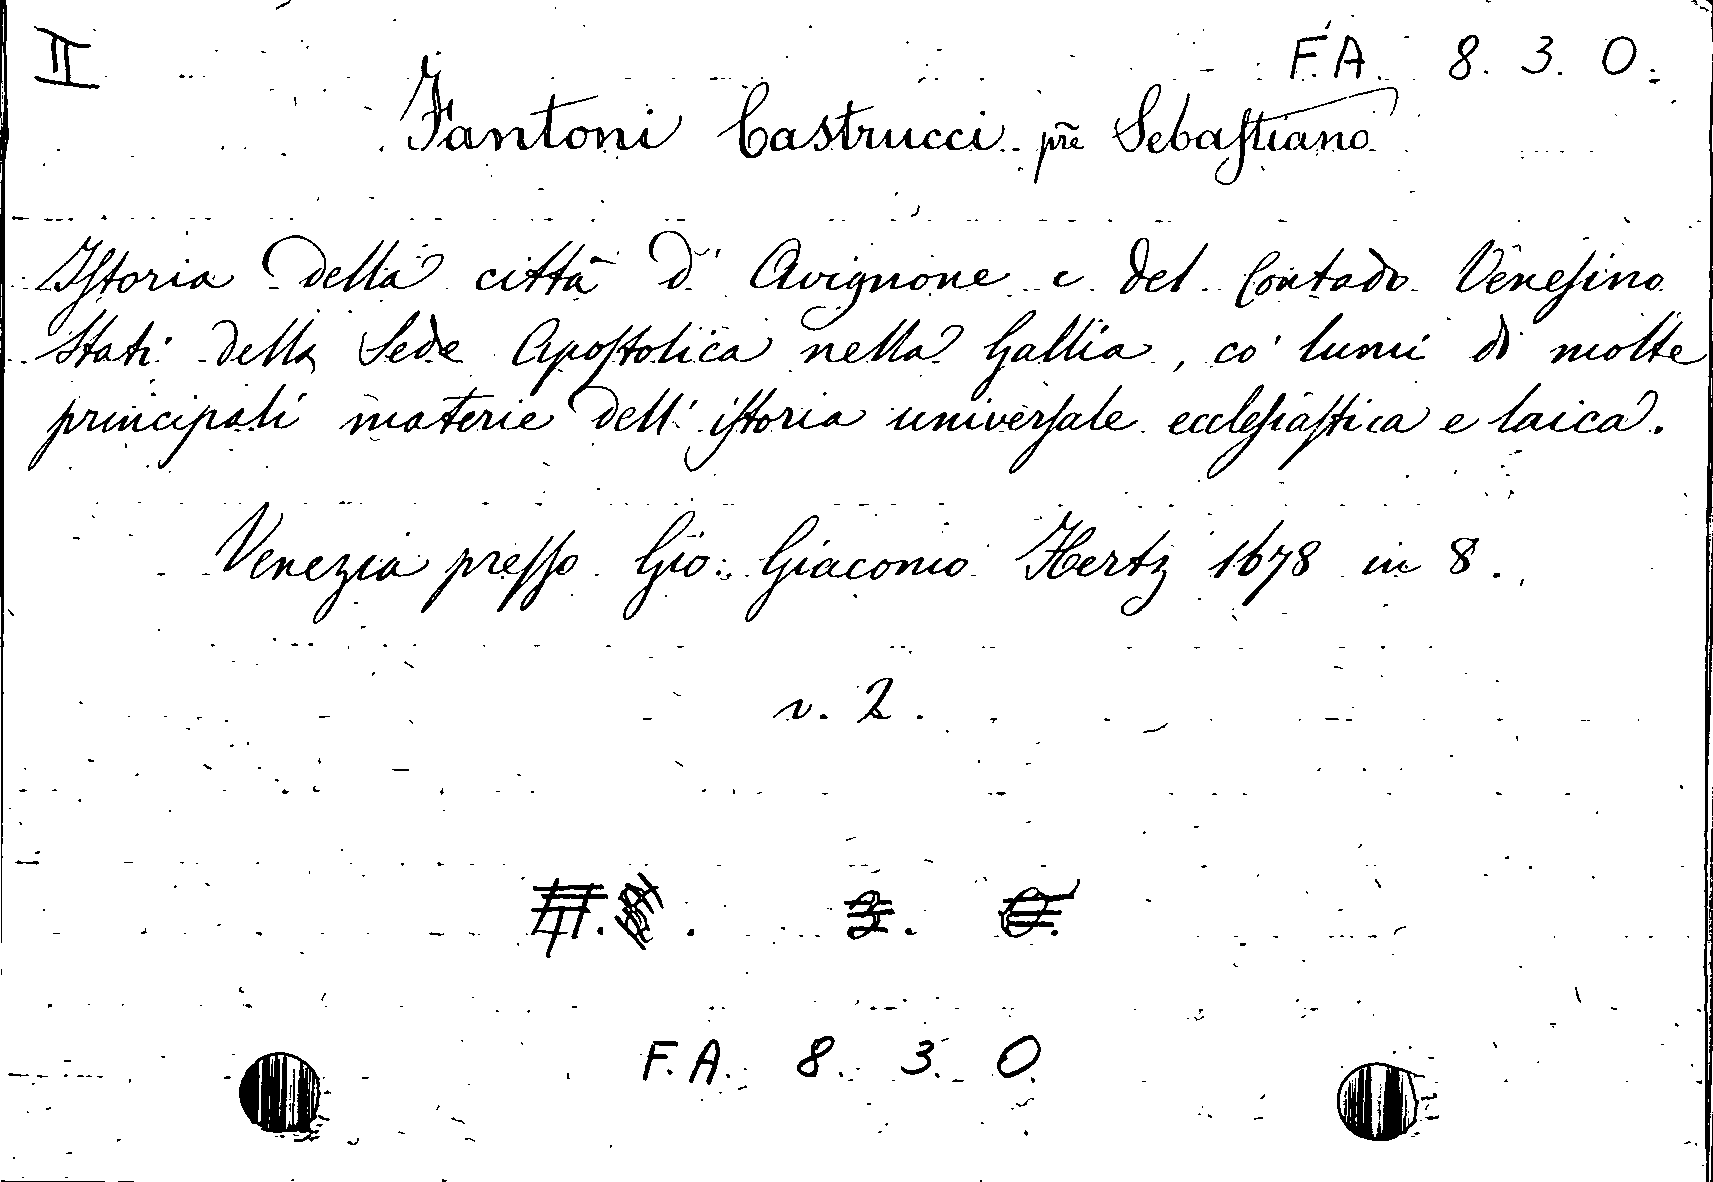 II
F.A. 8. 3. O.
Fantoni Castrucci prē Sebaſtiano
Iſtoria della città d' Avignone e del Contado Veneſino
Stati della Sede Apoſtolica nella Gallia, co' lumi di molte
principali materie dell' iſtoria univerſale eccleſiaſtica e laica.
Venezia preſſo Gio: Giacomo Hertz 1678 in 8.
v. 2.
F.A. 8. 3. O.